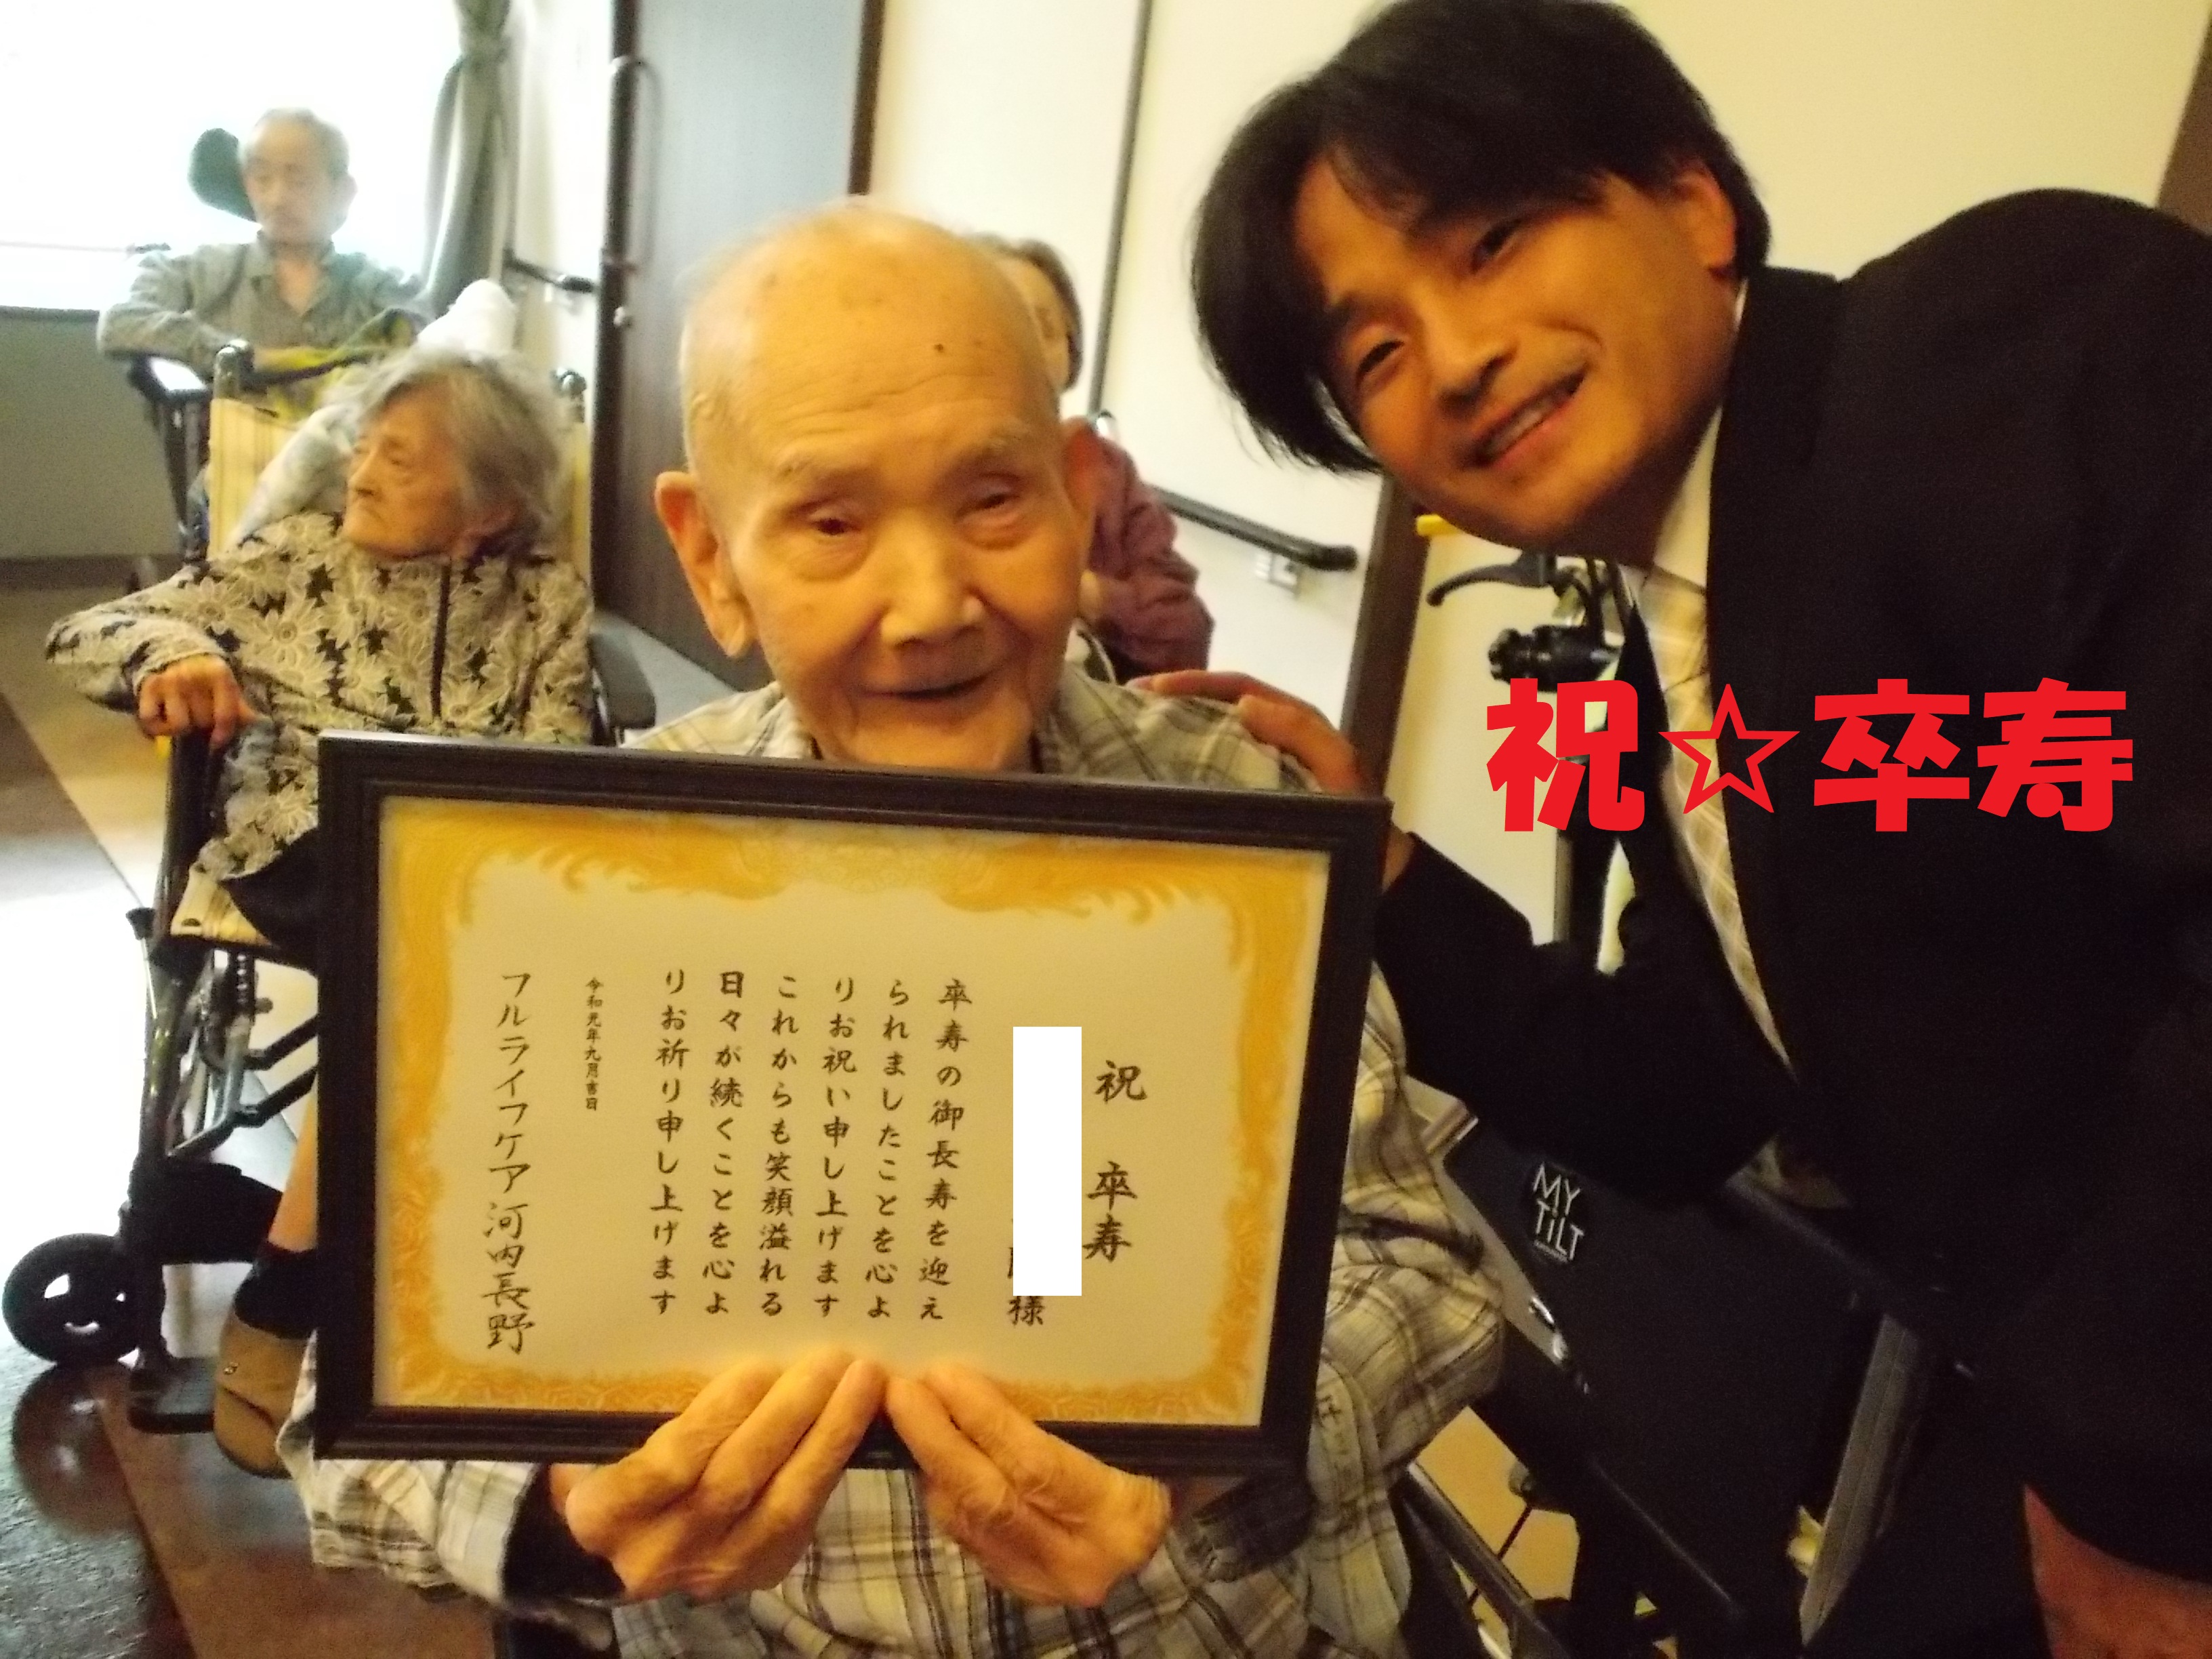 祝☆卒寿
祝 卒寿
様
卒寿の御長寿を迎え
られましたことを心よ
りお祝い申し上げます
これからも笑顔溢れる
日々が続くことを心よ
りお祈り申し上げます
令和元年九月吉日
フルライフケア河内長野
MY
TILT